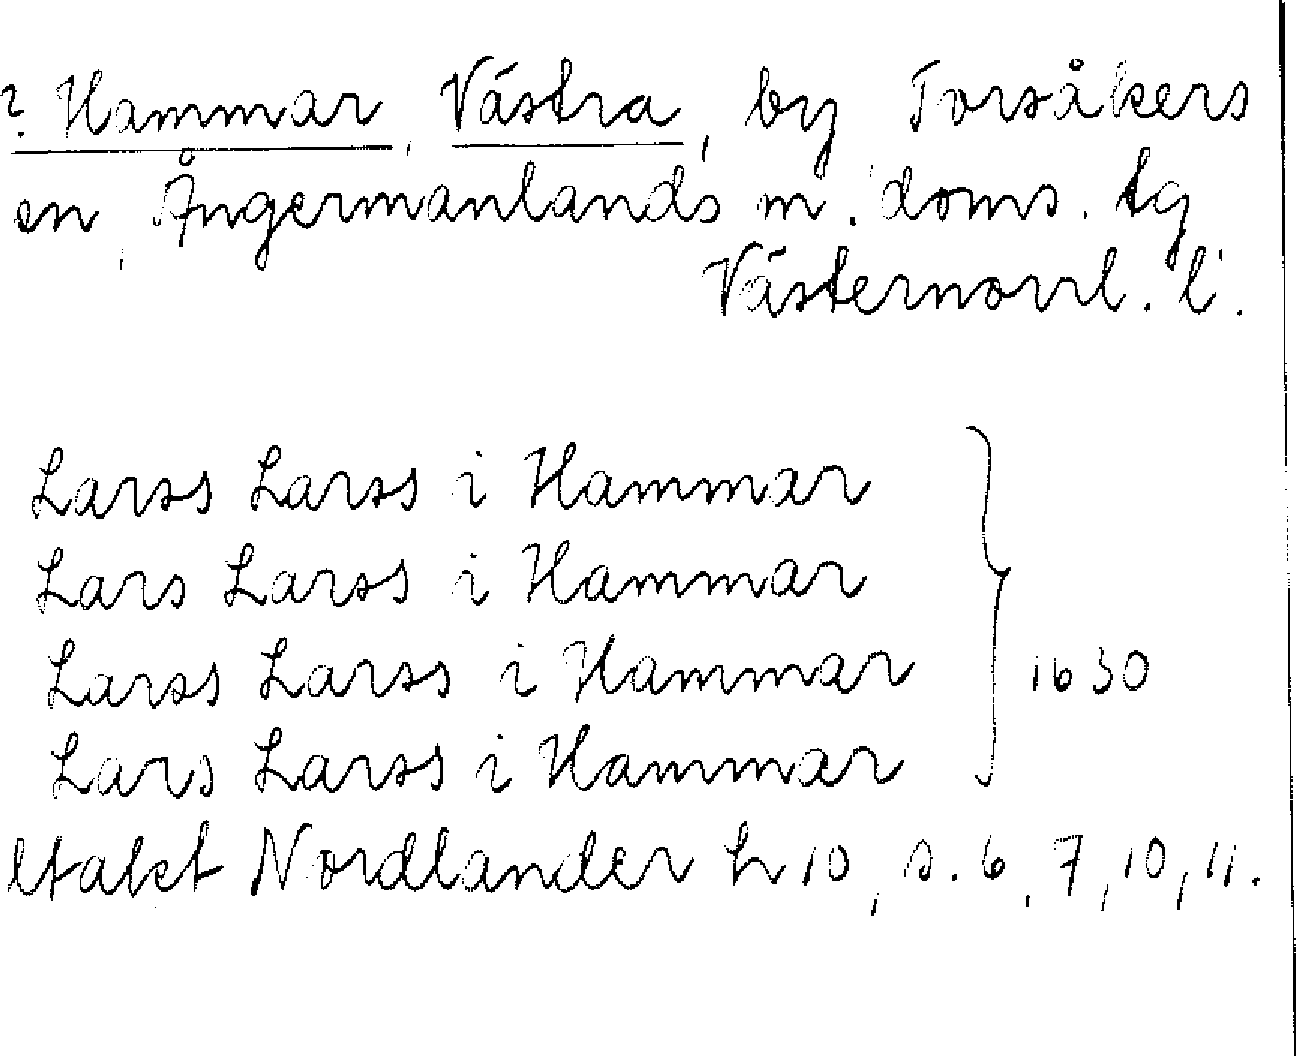 ? Hammar, Västra, by Torsåkers
en, Ångermanlands m. doms. tg
Västernorrl. l.
Larss Larss i Hammar
Lars Larss i Hammar
Larss Larss i Hammar
Lars Larss i Hammar
} 1630
Utakt Nordlander h 10, s. 6, 7, 10, 11.